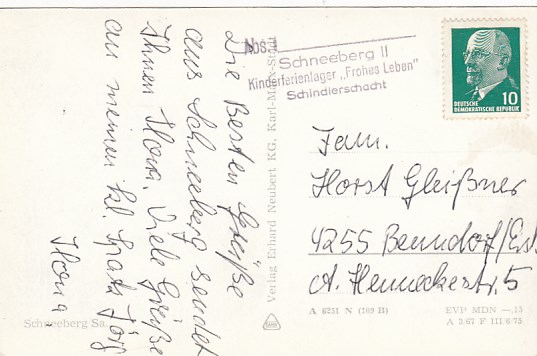 Abs.:
Schneeberg II
Kinderferienlager „Frohes Leben"
Schindlerschacht
DEUTSCHE
DEMOKRATISCHE REPUBLIK
10
Die Besten Grüße
aus Schneeberg sendet
Ihnen Ilona. Viele Grüße
an meinen kl. Jörg
Ilona
Verlag Erhard Neubert KG. Karl-Marx-Stadt
Fam.
Horst Gleißner
4255 Benndorf/Eisl.
A. Henneckestr. 5
Schneeberg Sa.
A 6251 N (109 B)
EVP MDN —,15
A 3/67 F III/6/73